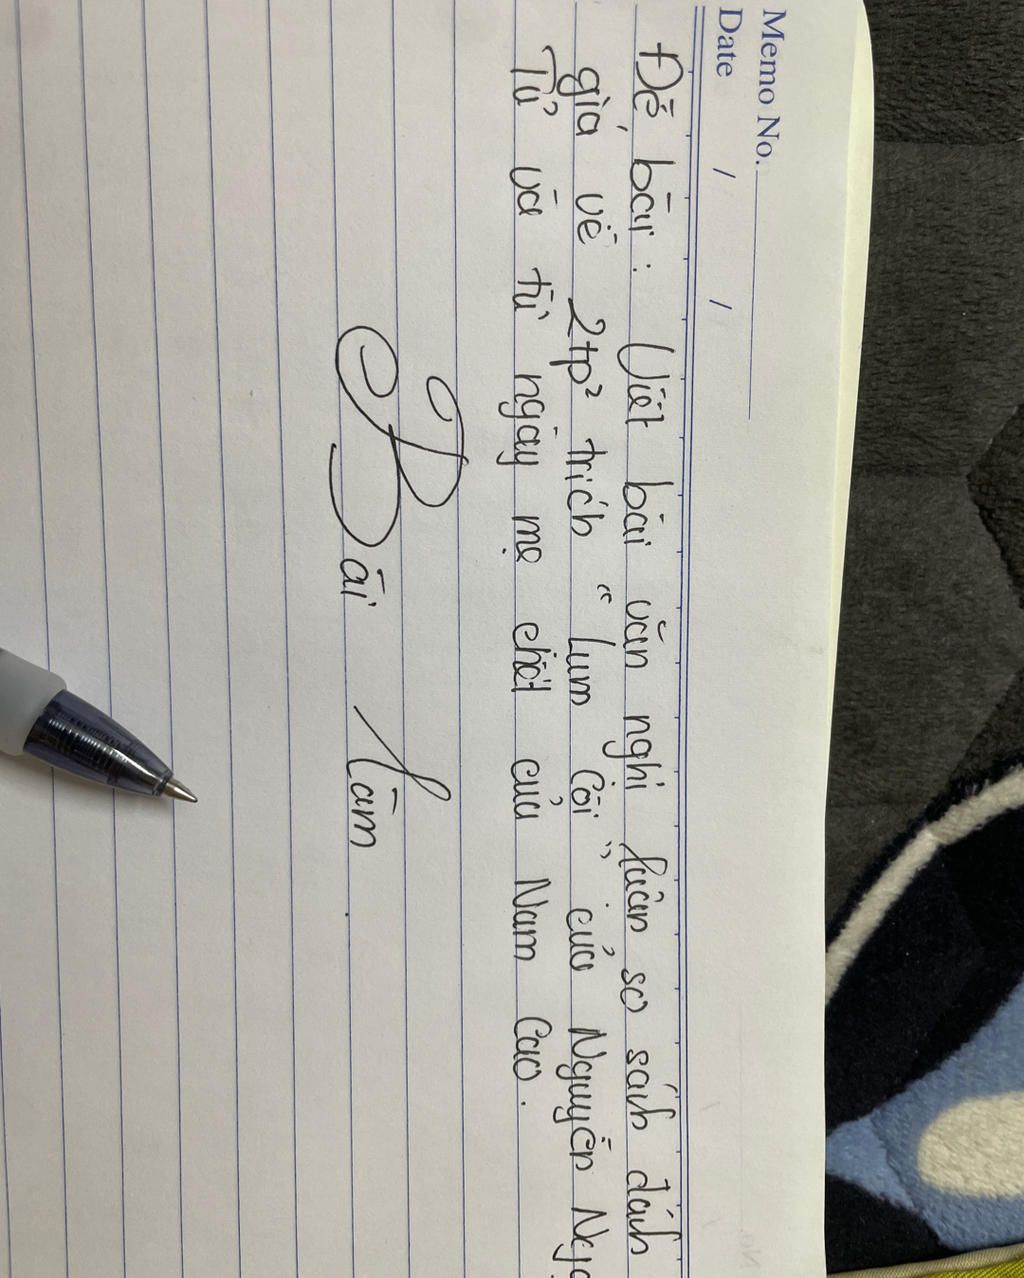 Memo No.
Date / /
Đề bài: Viết bài văn nghị luận so sánh đánh
giá về 2tp² trích " Lụm Còi " của Nguyễn Ngọc
Tư và từ ngày mẹ chết của Nam Cao.
Bài làm